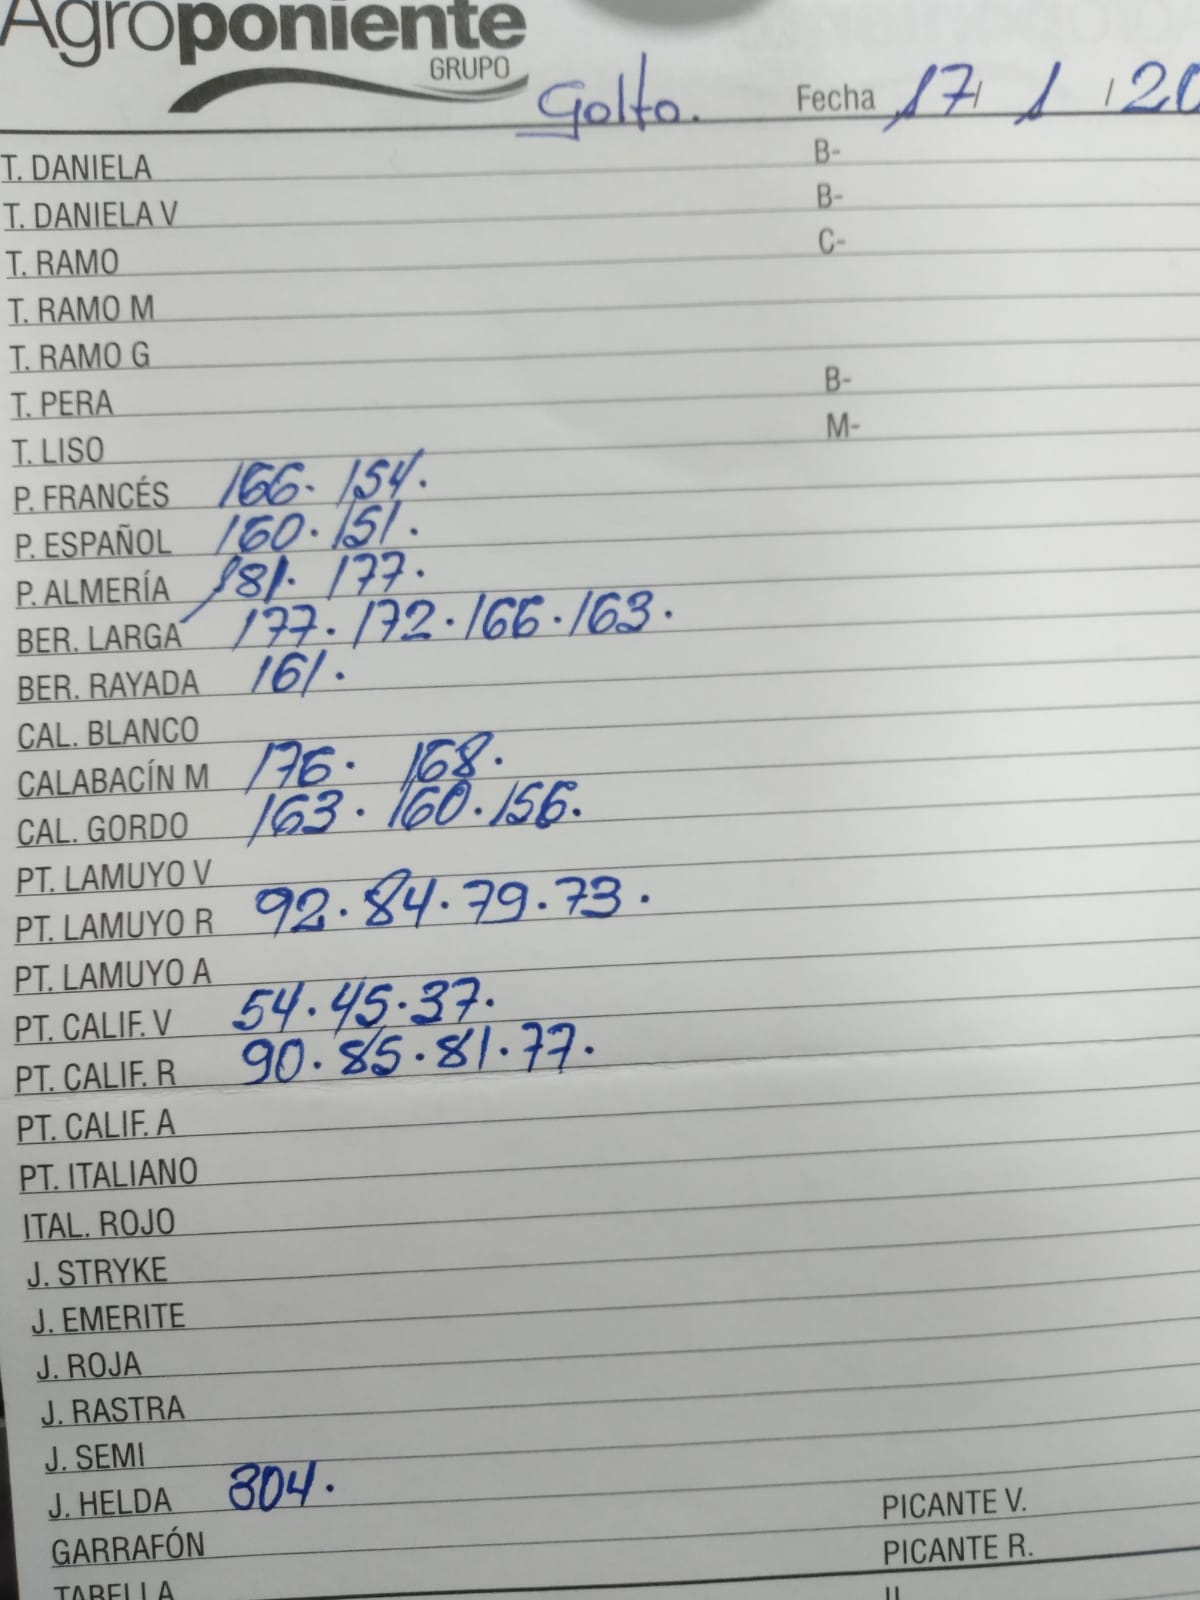 Agroponiente
GRUPO
Golfo. Fecha 17/ 1 /20
T. DANIELA B-
T. DANIELA V B-
T. RAMO C-
T. RAMO M
T. RAMO G
T. PERA B-
T. LISO M-
P. FRANCÉS 166. 154.
P. ESPAÑOL 160. 151.
P. ALMERÍA 181. 177.
BER. LARGA 177. 172. 166. 163.
BER. RAYADA 161.
CAL. BLANCO
CALABACÍN M 176. 168.
CAL. GORDO 163. 160. 156.
PT. LAMUYO V
PT. LAMUYO R 92. 84. 79. 73.
PT. LAMUYO A
PT. CALIF. V 54. 45. 37.
PT. CALIF. R 90. 85. 81. 77.
PT. CALIF. A
PT. ITALIANO
ITAL. ROJO
J. STRYKE
J. EMERITE
J. ROJA
J. RASTRA
J. SEMI
J. HELDA 304.
GARRAFÓN PICANTE V.
TABELLA PICANTE R.